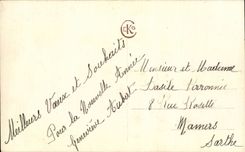 Meilleurs Vœux et Souhaits
Pour la Nouvelle Année
Geneviève Aubert
Monsieur et Madame
8 Rue Roselle
Mamers
Sarthe